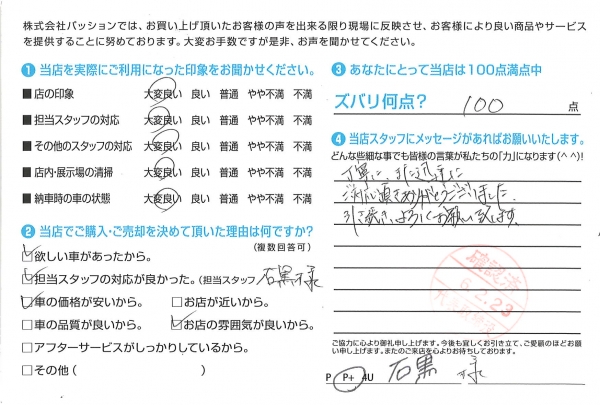 株式会社パッションでは、お買い上げ頂いたお客様の声を出来る限り現場に反映させ、お客様により良い商品やサービス
を提供することに努めております。大変お手数ですが是非、お声を聞かせてください。
❶ 当店を実際にご利用になった印象をお聞かせください。
■店の印象 大変良い 良い 普通 やや不満 不満
■担当スタッフの対応 大変良い 良い 普通 やや不満 不満
■その他のスタッフの対応 大変良い 良い 普通 やや不満 不満
■店内・展示場の清掃 大変良い 良い 普通 やや不満 不満
■納車時の車の状態 大変良い 良い 普通 やや不満 不満
❷ 当店でご購入・ご売却を決めて頂いた理由は何ですか?
(複数回答可)
欲しい車があったから。
担当スタッフの対応が良かった。(担当スタッフ 石黒 様)
車の価格が安いから。 □お店が近いから。
□車の品質が良いから。 お店の雰囲気が良いから。
□アフターサービスがしっかりしているから。
□その他( )
❸ あなたにとって当店は100点満点中
ズバリ何点? 100 点
❹ 当店スタッフにメッセージがあればお願いいたします。
どんな些細な事でも皆様の言葉が私たちの「力」になります(^^)!
丁寧に、また迅速に
ご対応頂きありがとうございました。
引き続き、よろしくお願い致します。
確認済
6.2.23
ご協力に心より御礼申し上げます。今後も宜しくお引き立て、ご愛顧のほどお願
い申し上げます。またのご来店を心よりお待ちしております。
P P+ 4U 石黒 様